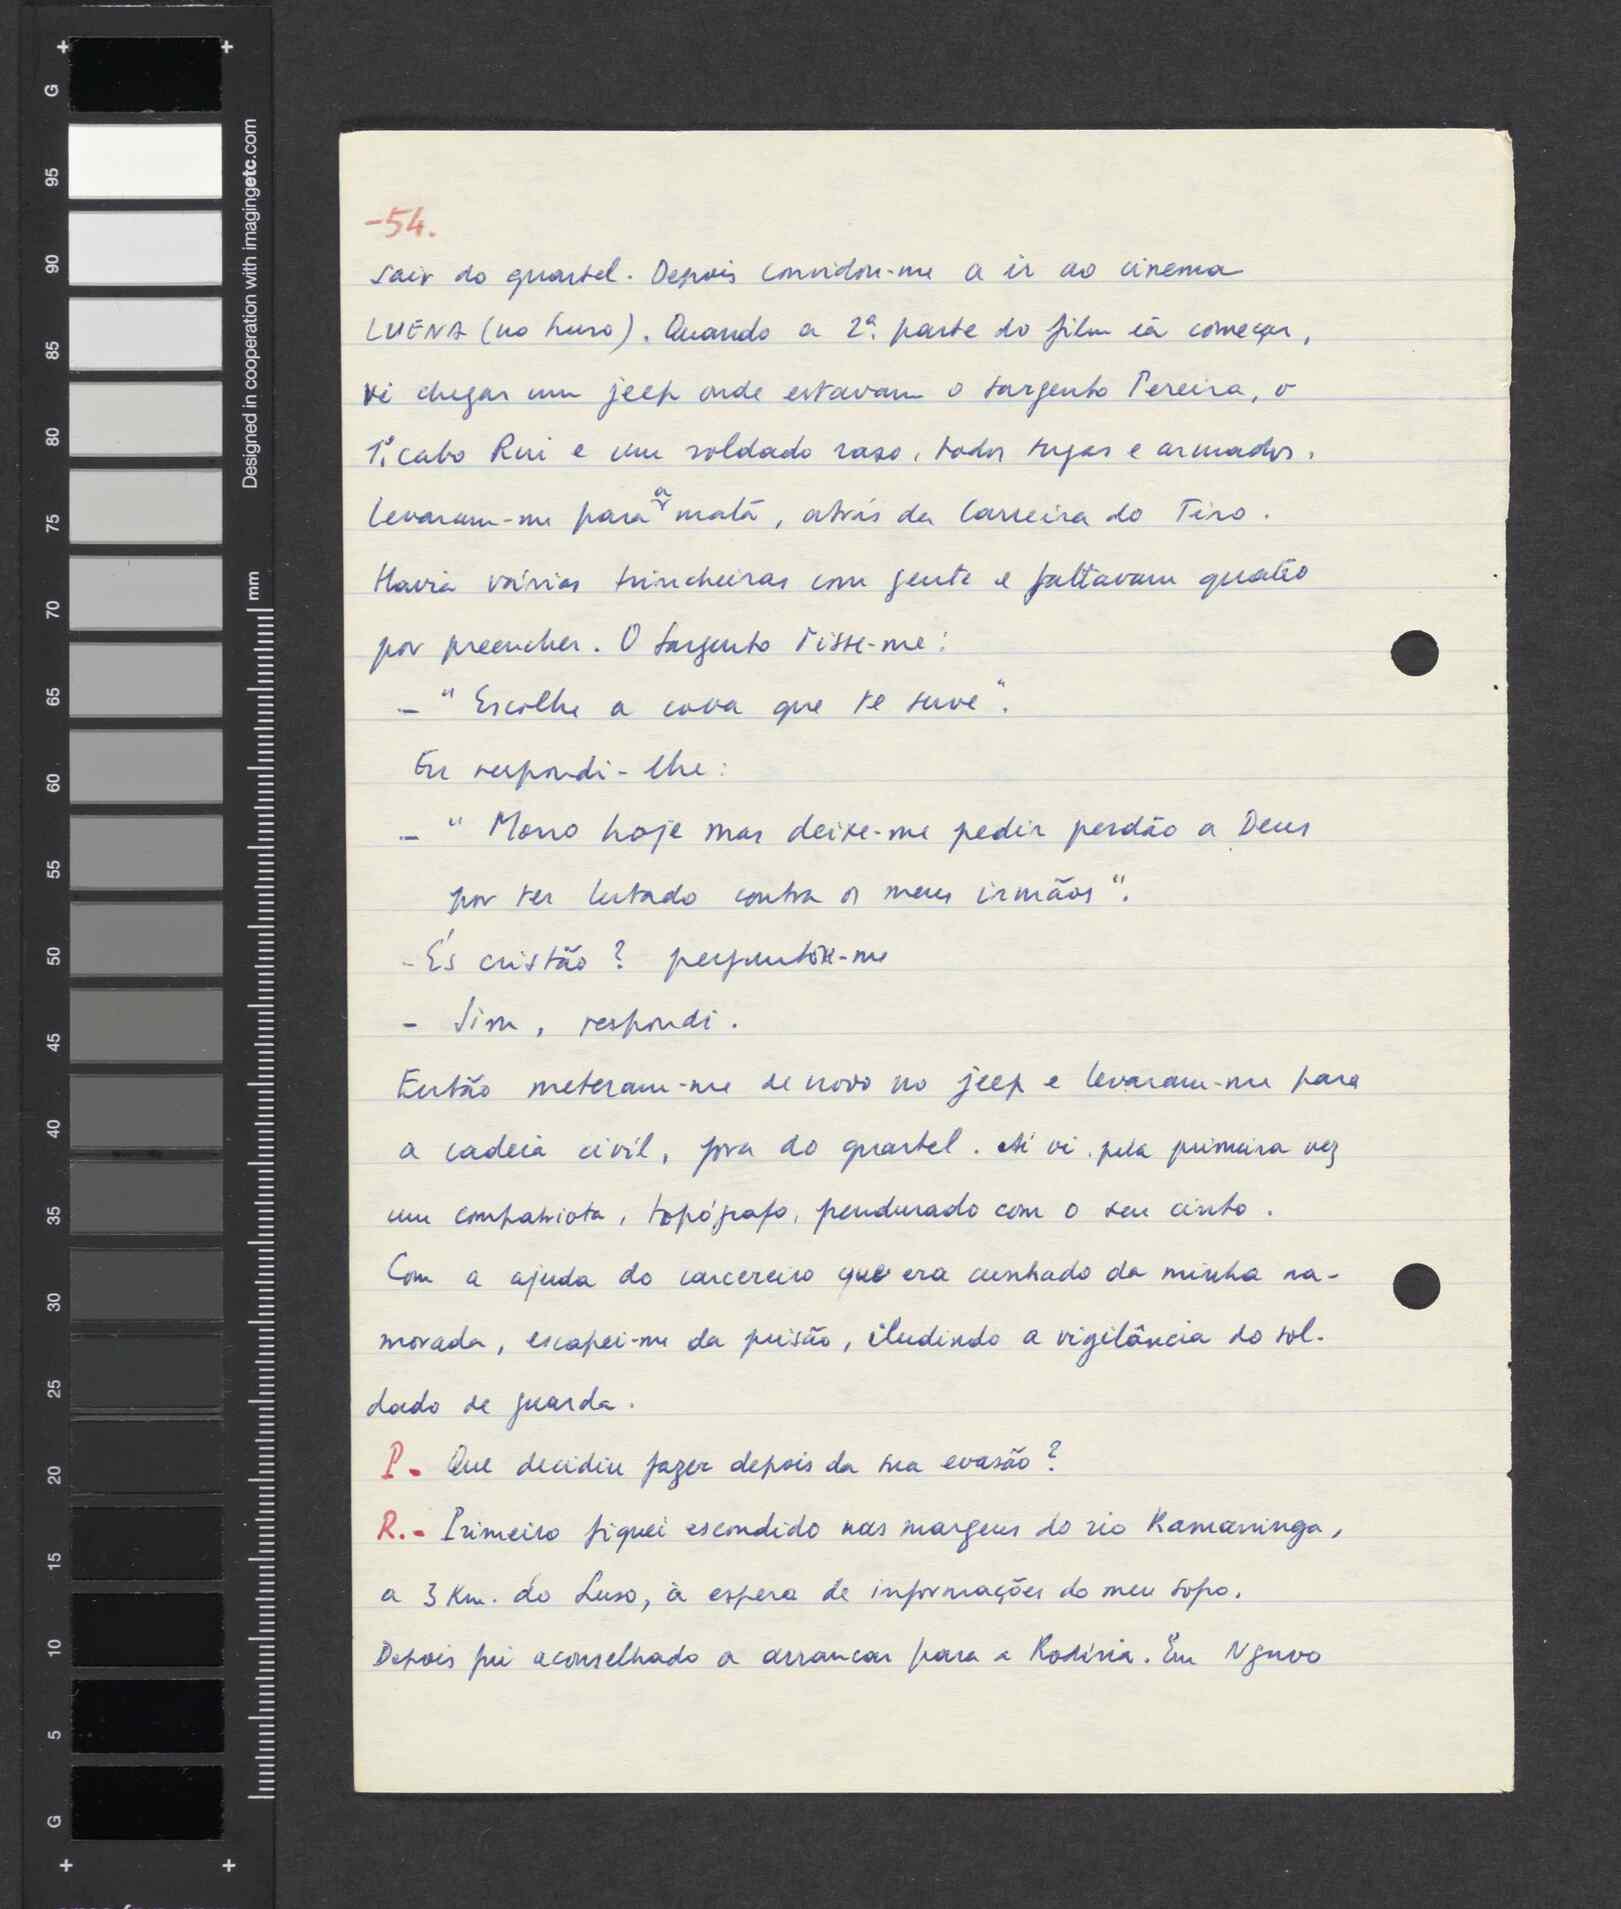 G
95
90
85
80
75
70
65
60
55
50
45
40
35
30
25
20
15
10
5
G
Designed in cooperation with imagingetc.com
mm
-54.
sair do quartel. Depois convidou-me a ir ao cinema
LUENA (no Luso). Quando a 2ª. parte do film ia começar,
vi chegar um jeep onde estavam o sargento Pereira, o
1º. cabo Rui e um soldado raso, todos tugas e armados.
Levaram-me para a mata, atrás da Carreira do Tiro.
Havia várias trincheiras com gente e faltavam quatro
por preencher. O Sargento disse-me:
- "Escolhe a cova que te serve".
Eu respondi-lhe:
- "Morro hoje mas deixe-me pedir perdão a Deus
por ter lutado contra os meus irmãos".
- És cristão? perguntou-me
- Sim, respondi.
Então meteram-me de novo no jeep e levaram-me para
a cadeia civil, fora do quartel. Aí vi pela primeira vez
um compatriota, topógrafo, pendurado com o seu cinto.
Com a ajuda do carcereiro que era cunhado da minha na-
morada, escapei-me da prisão, iludindo a vigilância do sol-
dado de guarda.
P. - Que decidiu fazer depois da sua evasão?
R. - Primeiro fiquei escondido nas margens do rio Kamaninga,
a 3 Km. do Luso, à espera de informações do meu sopo.
Depois fui aconselhado a arrancar para a Rodísia. Em Nguvo